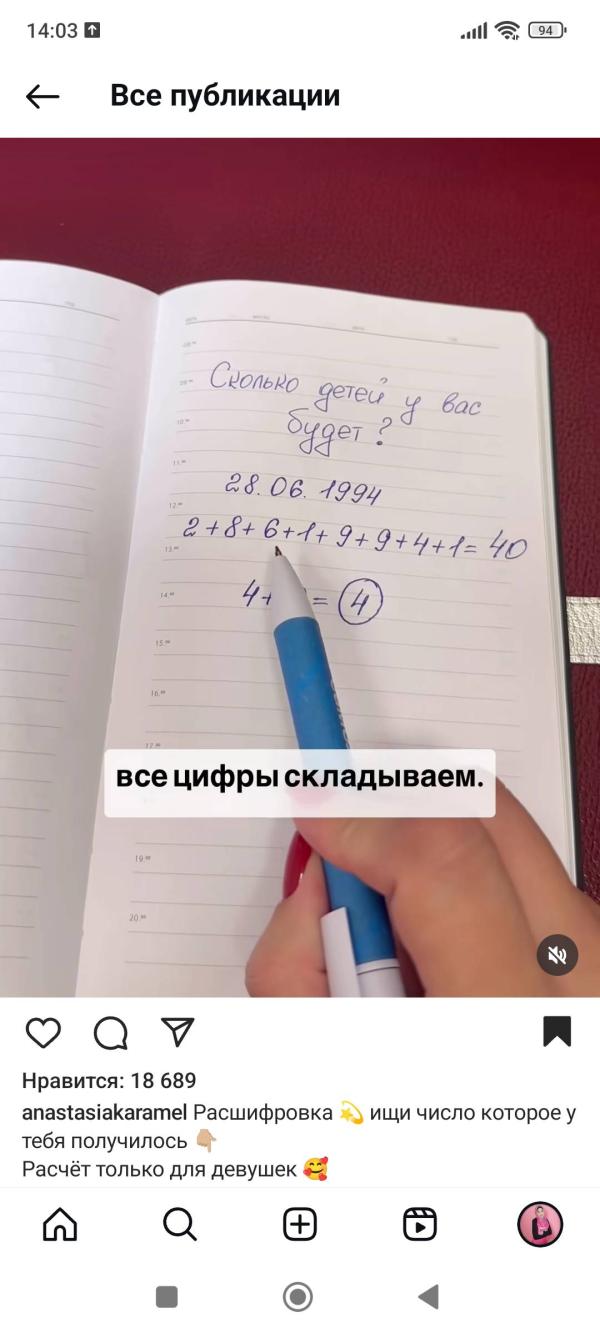 14:03
94
Все публикации
Сколько детей у вас
будет?
28.06.1994
2+8+6+1+9+9+4+1=40
4+ = 4
все цифры складываем.
Нравится: 18 689
anastasiakaramel Расшифровка 💫 ищи число которое у
тебя получилось 👇🏼
Расчёт только для девушек 🥰